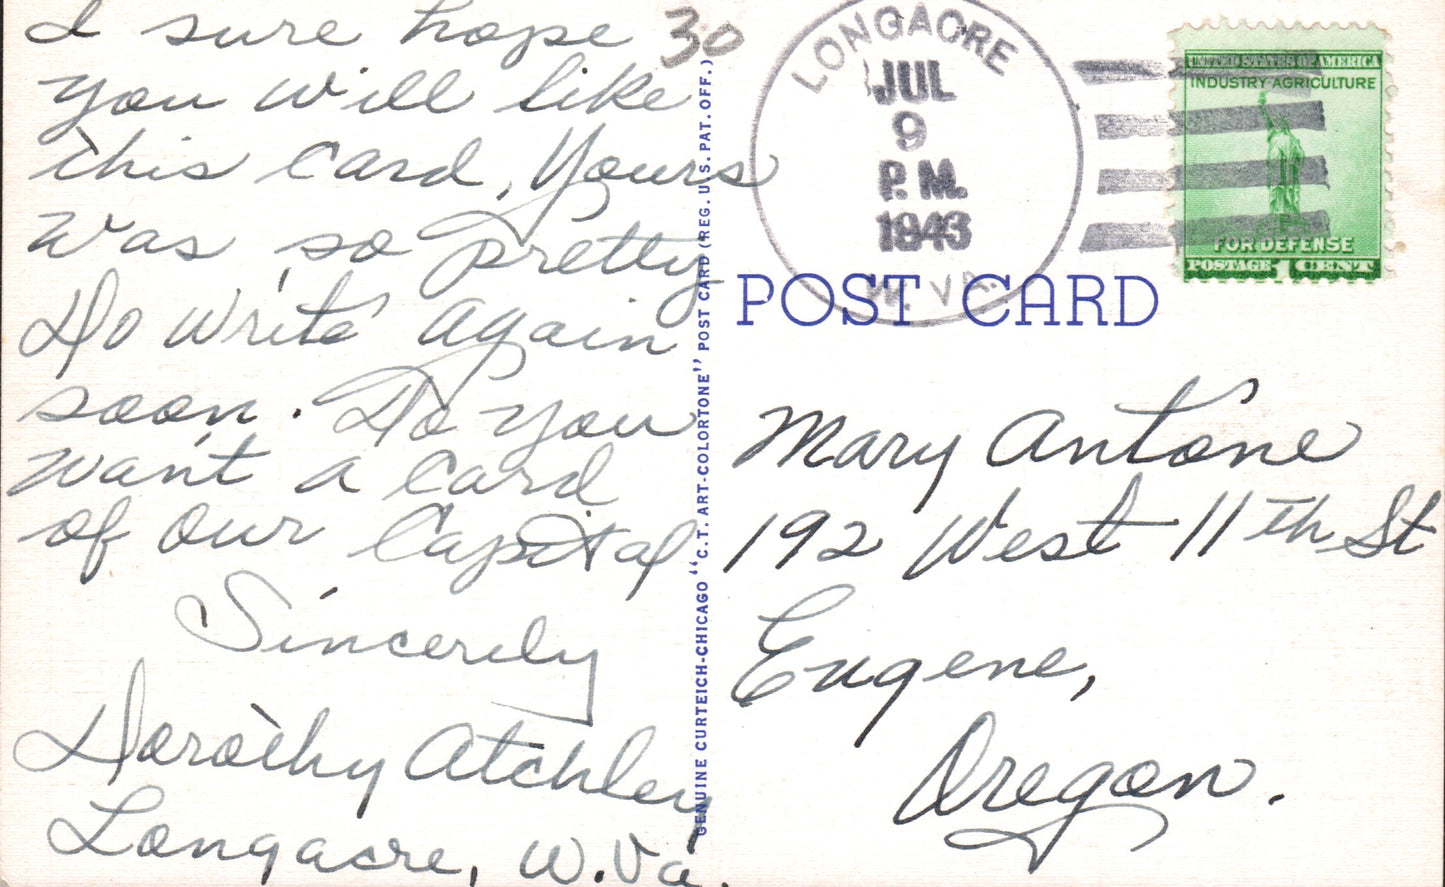 I sure hope
you will like
this card, Yours
was so pretty
Do write again
soon. Do you
want a card
of our Capital
Sincerely
Dorothy Atchley
Longacre, W.Va.
30
GENUINE CURTEICH-CHICAGO "C.T. ART-COLORTONE" POST CARD (REG. U.S. PAT. OFF.)
LONGACRE
JUL
9
P.M.
1943
W. VA.
UNITED STATES OF AMERICA
INDUSTRY·AGRICULTURE
FOR DEFENSE
POSTAGE 1 CENT
POST CARD
Mary Antone
192 West 11th St
Eugene,
Oregon.